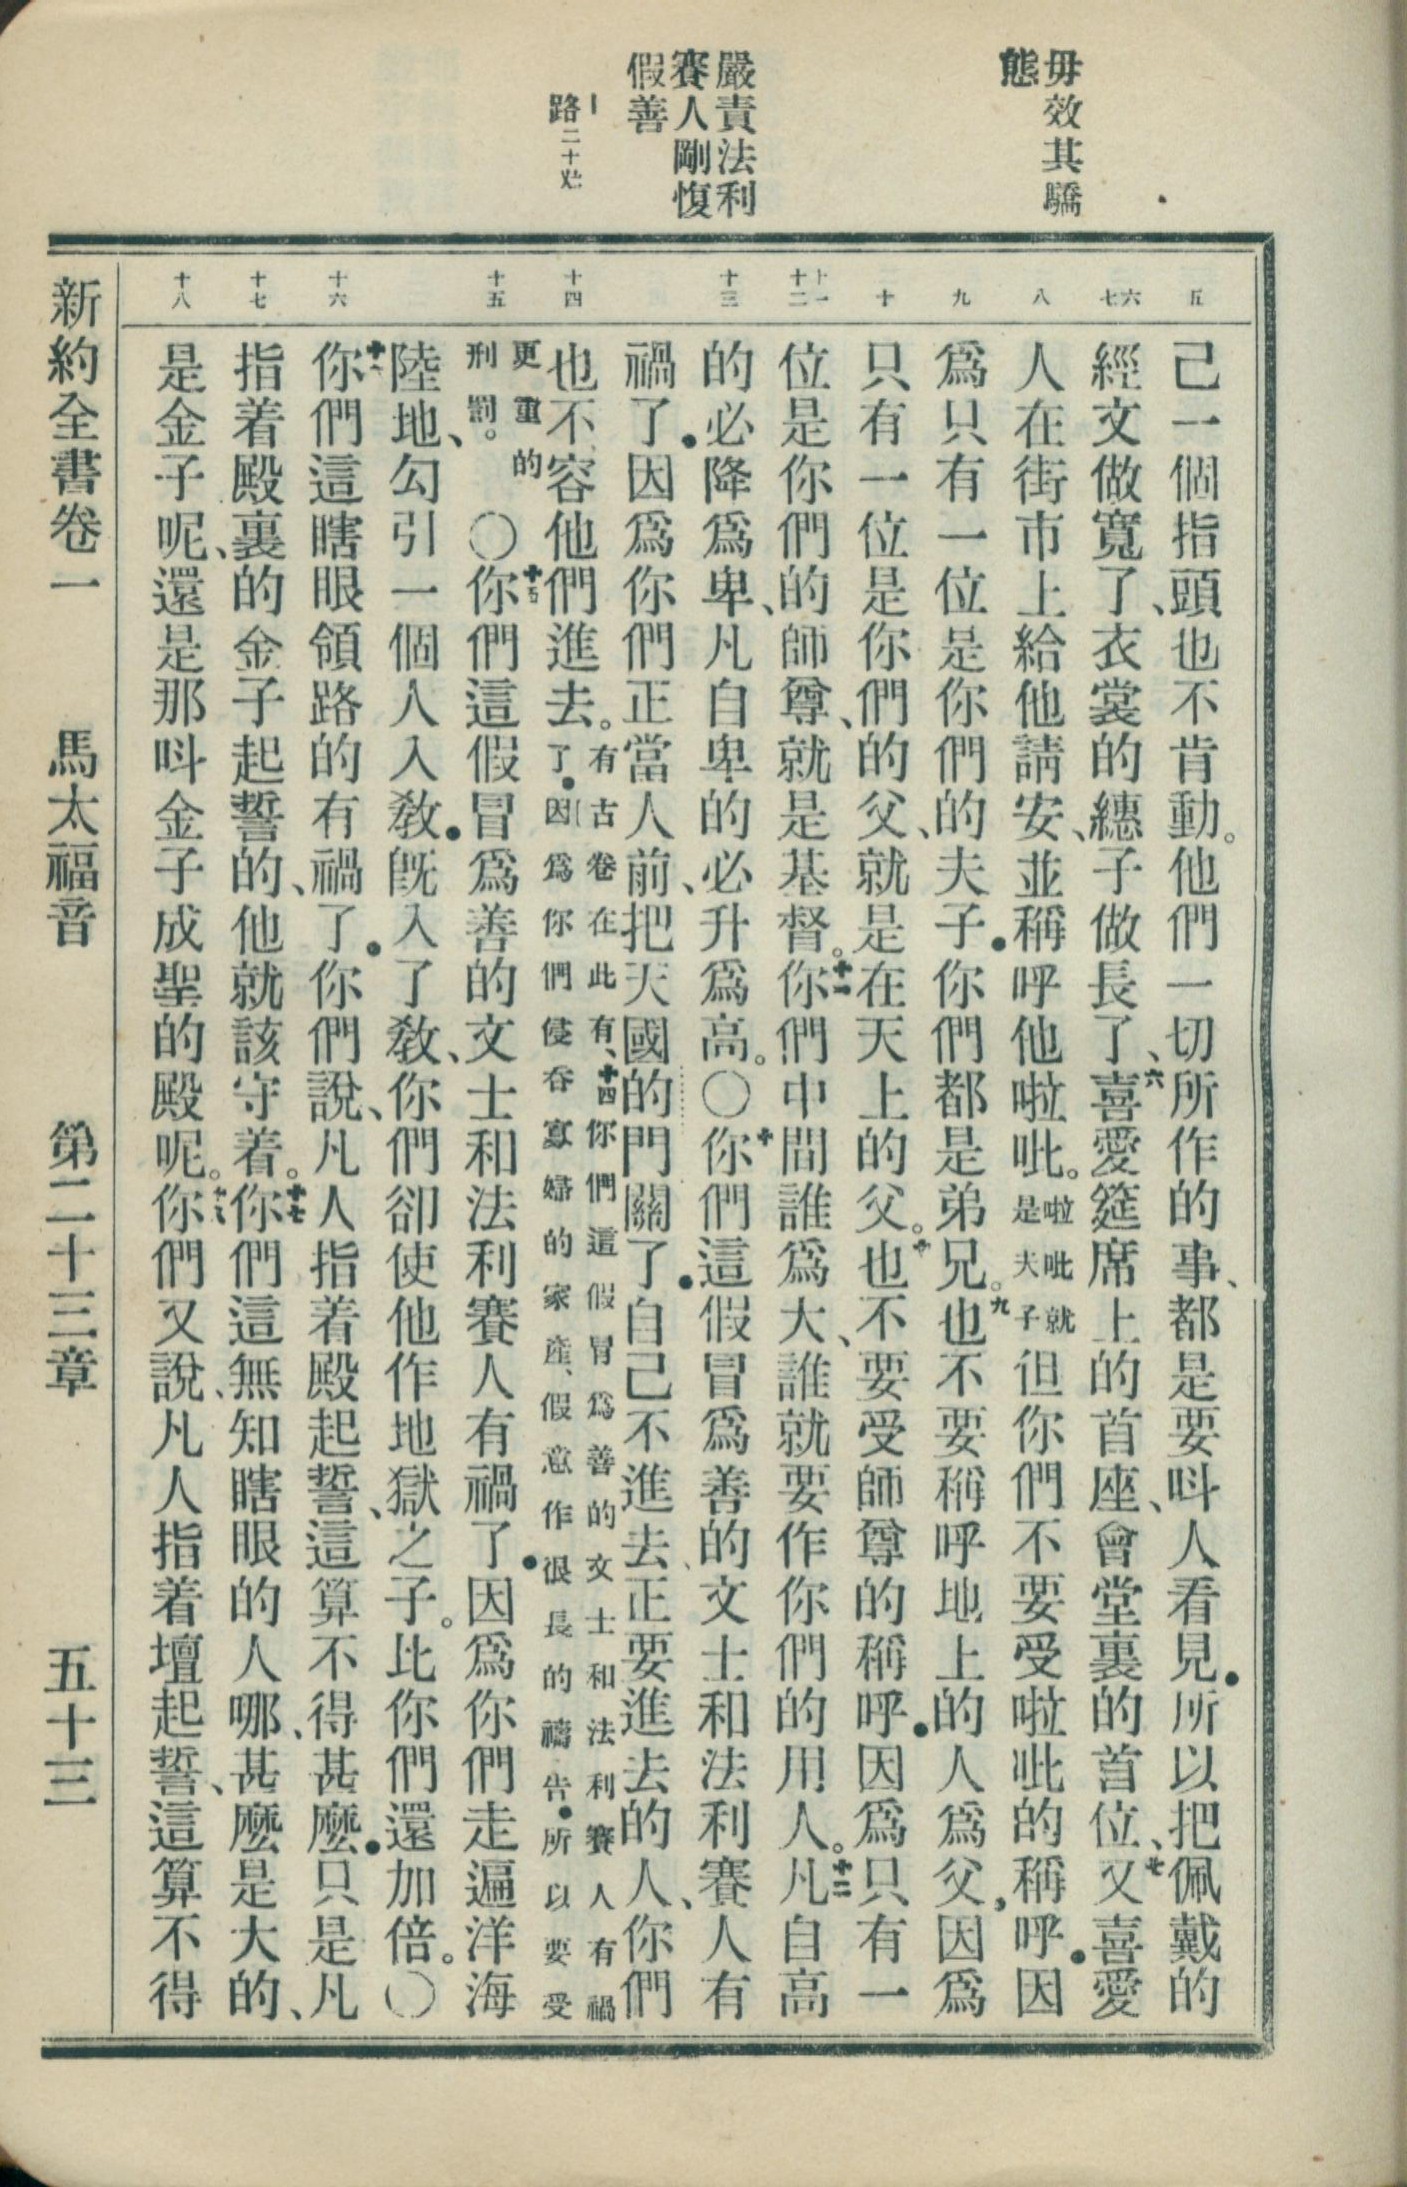 毋效其驕
態
嚴責法利
賽人剛愎
假善
路二十
五
六
七
八
九
十
十一
十二
十三
十四
十五
十六
十七
十八
己一個指頭也不肯動。他們一切所作的事、都是要呌人看見．所以把佩戴的
經文做寬了、衣裳的繐子做長了、六喜愛筵席上的首座、會堂裏的首位、七又喜愛
人在街市上給他請安、並稱呼他啦吡。啦吡就是夫子但你們不要受啦吡的稱呼．因
爲只有一位是你們的夫子．你們都是弟兄。九也不要稱呼地上的人爲父、因爲
只有一位是你們的父、就是在天上的父。十也不要受師尊的稱呼．因爲只有一
位是你們的師尊、就是基督。十一你們中間誰爲大、誰就要作你們的用人。十二凡自高
的必降爲卑、凡自卑的必升爲高。〇你們這假冒爲善的文士和法利賽人有
禍了．因爲你們正當人前、把天國的門關了．自己不進去、正要進去的人、你們
也不容他們進去。有古卷在此有、十四你們這假冒爲善的文士和法利賽人有禍
了．因爲你們侵吞寡婦的家產、假意作很長的禱告．所以要受
更重的
刑罰。
〇十五你們這假冒爲善的文士和法利賽人有禍了．因爲你們走遍洋海
陸地、勾引一個人入敎．旣入了敎、你們卻使他作地獄之子。比你們還加倍。〇
十六你們這瞎眼領路的有禍了．你們說、凡人指着殿起誓、這算不得甚麼．只是凡
指着殿裏的金子起誓的、他就該守着。十七你們這無知瞎眼的人哪、甚麼是大的、
是金子呢、還是那呌金子成聖的殿呢。十八你們又說、凡人指着壇起誓、這算不得
新約全書卷一　馬太福音　第二十三章　五十三